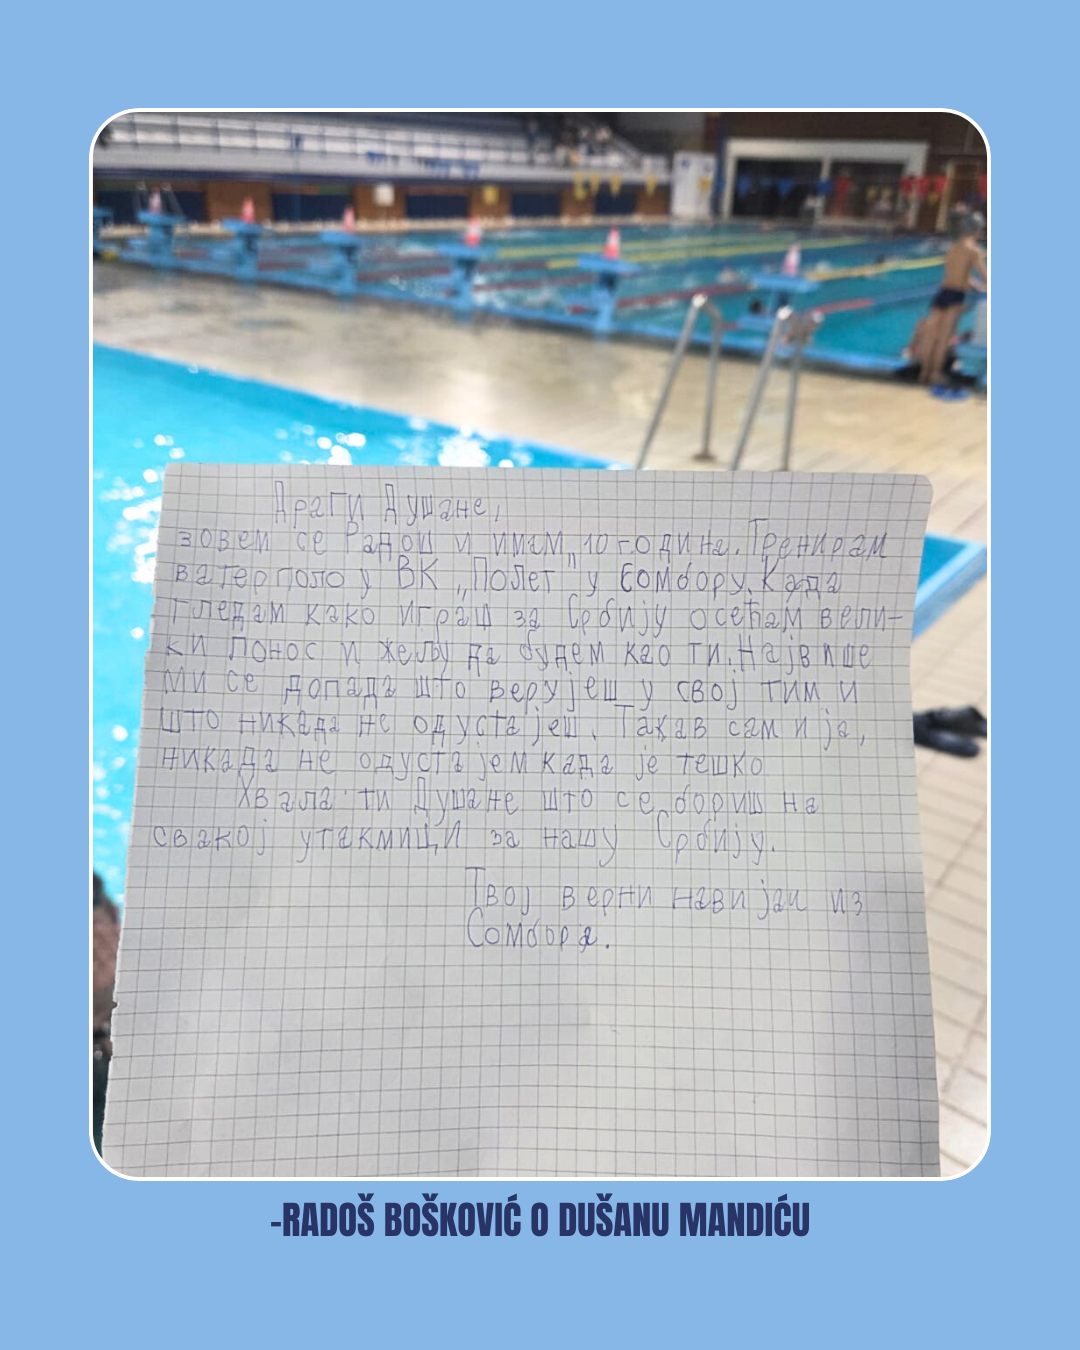 Драги Душане,
зовем се Радош и имам 10 година. Тренирам
ватерполо у ВК „Полет" у Сомбору. Када
гледам како играш за Србију осећам вели-
ки понос и жељу да будем као ти. Највише
ми се допада што верујеш у свој тим и
што никада не одустајеш. Такав сам и ја,
никада не одустајем када је тешко
Хвала ти Душане што се бориш на
свакој утакмици за нашу Србију.
Твој верни навијач из
Сомбора.
-RADOŠ BOŠKOVIĆ O DUŠANU MANDIĆU